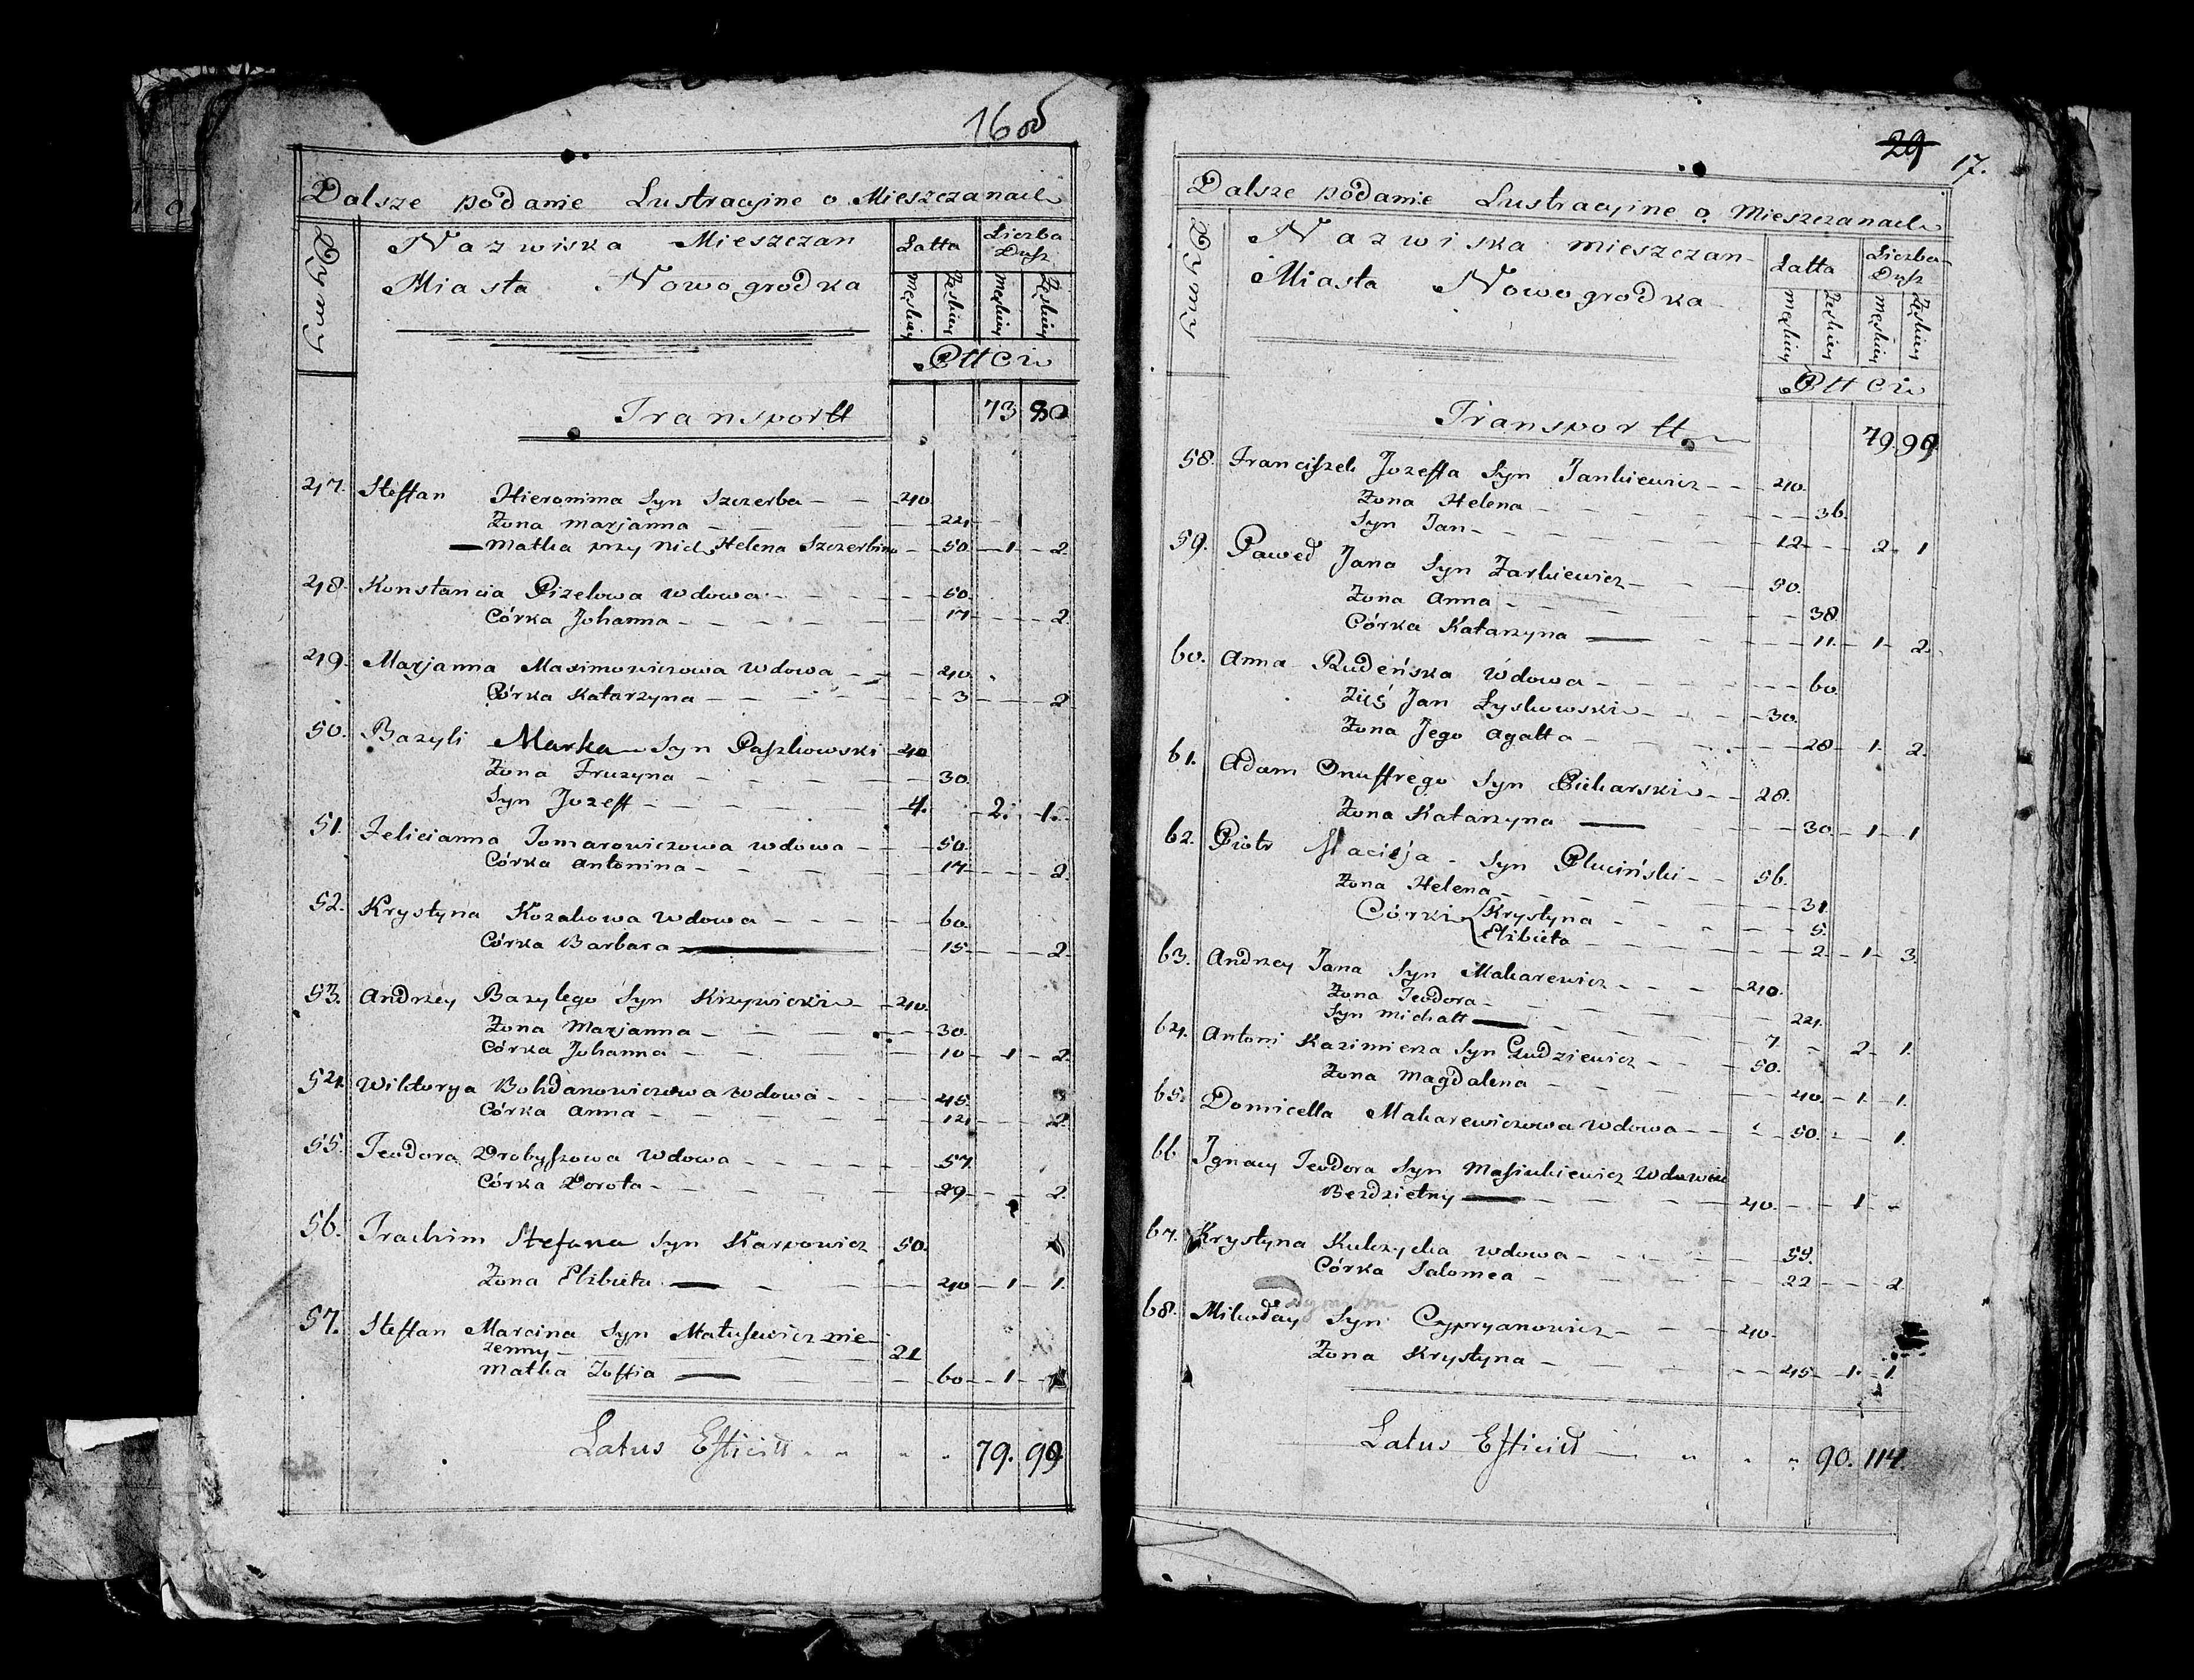 16 об
Dalsze podanie Lustracyine o Mieszczanach
Dymy
Nazwiska Mieszczan
Miasta Nowogrodka
Latta
Liczba Dusz
Męskiey Żeskiey Męskiey Żeskiey
Płtci
Transportt 73 80
47. Steffan Hieronima Syn Szczerba — — 40.
Żona Marjanna — — 24
Matka przy Nich Helena Szczerbina — 50 — 1 — 2
48. Konstancia Pizelowa wdowa — — 50.
Córka Johanna — — 17 — — 2.
49. Marjanna Maximowiczowa wdowa — — 40.
Córka Katarzyna — — 3 — — 2
50. Bazyli Marka Syn Paszkowski 40
Żona Fruzyna — — 30.
Syn Jozeff — — 4. — 2. — 1.
51. Felicianna Tomarowiczowa wdowa — — 50.
Córka Antonina — — 17 — — 2.
52. Krystyna Kozakowa wdowa — — 60.
Córka Barbara — — 15 — — 2.
53. Andrzey Bazylego Syn Krzywicki — 40.
Żona Marjanna — — 30.
Córka Johanna — — 10 — 1 — 2.
54. Wiktorya Bohdanowiczowa wdowa — — 45.
Córka Anna — — 12 — — 2.
55. Teodora Drobyszowa wdowa — — 57.
Córka Dorota — — 29 — — 2.
56. Trachim Stefana Syn Karpowicz 50.
Żona Elżbieta — — 40 — 1 — 1.
57. Steffan Marcina Syn Matusewicz nie-
żenny — — 21
Matka Zoffia — — 60 — 1 — 1
Latus Efficitt „ „ 79. 99
29 17.
Dalsze podanie Lustracyine o Mieszczanach
Dymy
Nazwiska mieszczan
Miasta Nowogrodka
Latta
Liczba Dusz
Męskiey Żeskiey Męskiey Żeskiey
Płtci
Transportt 79. 99.
58. Franciszek Jozeffa Syn Jankiewicz — — 40.
Żona Helena — — 36.
Syn Jan — — 12 — — 2 — 1
59. Paweł Jana Syn Żarkiewicz — — 50.
Żona Anna — — 38.
Córka Katarzyna — — 11. — 1 — 2.
60. Anna Rudeńska Wdowa — — 60.
Zięć Jan Łyskowski — — 30.
Żona Jego Agatta — — 28 — 1. — 2.
61. Adam Onuffrego Syn Piekarski — — 28.
Żona Katarzyna — — 30. — 1 — 1
62. Piotr Macieja Syn Pluciński — — 56.
Żona Helena — — 31.
Córki Krystyna — — 5.
Elżbieta — — 2. — 1 — 3.
63. Andrzey Jana Syn Makarewicz — — 40.
Żona Teodora — — 24.
Syn Michałł — — 7. — 2 — 1.
64. Antoni Kazimierza Syn Gudziewicz — — 50.
Żona Magdalena — — 40. — 1. — 1.
65. Domicella Makarewiczowa wdowa — — 50. — — 1.
66 Jgnacy Teodora Syn Masiukiewicz Wdowiec
Bezdzietny — — 40. — — 1. —
67. Krystyna Kulczycka wdowa — — 59.
Córka Salomea — — 22 — — 2
68. Mikołay Syn Cypryanowicz — — 40.
Żona Krystyna — — 45 — 1. — 1.
Latus Efficitt — „ „ „ 90. 114.